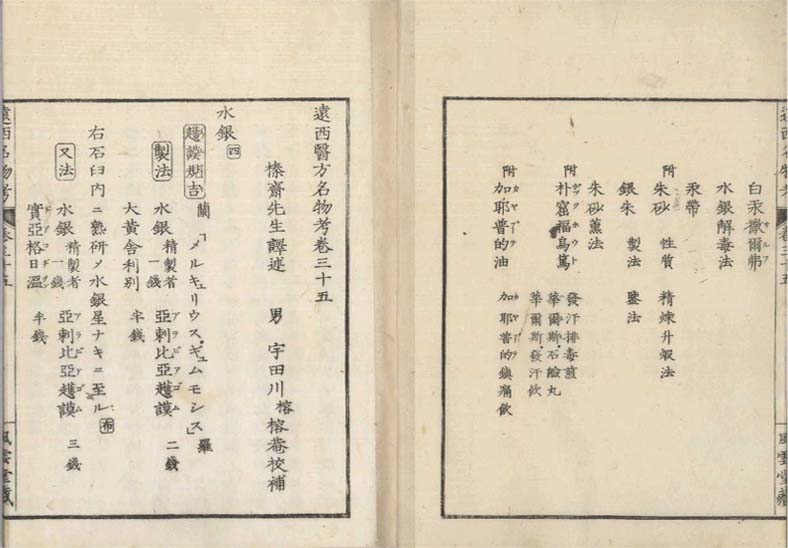 白汞撒爾弗
水銀解毒法
汞帶
附 朱砂 性質 精煉升煅法
銀朱 製法 鑒法
朱砂薫法
附 朴窟福烏篤 發汗排毒煎
華爾斯石鹼丸
華爾斯發汗飲
附 加耶普的油 加耶普的鎮痛飲
風雲堂藏
遠西醫方名物考卷三十五
榛齋先生譯述 男 宇田川榕 榕菴校補
水銀 四
蘭「メルキュリウス、ギュムモシス」羅
製法 水銀 精製者 一錢 亞剌比亞護謨 二錢
大黃舎利別 半錢
右石臼内ニ熟研ノ水銀星ナキニ至ル 布
又法 水銀 精製者 一錢 亞剌比亞護謨 三錢
實亞格日溫 半錢
遠西名物考 卷三十五 風雲堂藏